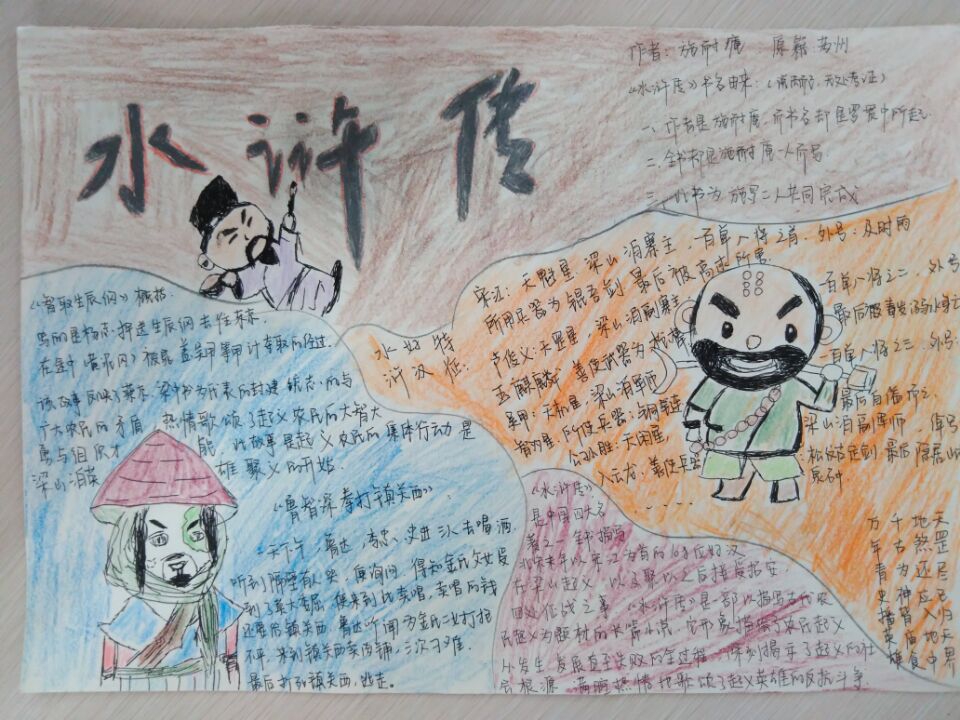 水浒传
作者：施耐庵 原籍 苏州
《水浒传》书名由来：
一、作者是施耐庵，而书名却是罗贯中所起
二、全书都是施耐庵一人所写
三、此书为施罗二人共同完成
《智取生辰纲》概括：
写的是杨志押送生辰纲去往东京
在途中黄泥冈被晁盖吴用用计夺取的经过
该故事反映了蔡京、梁中书为代表的封建统治者与
广大农民的矛盾，热情歌颂了起义农民的大智大
勇与组织才能，此故事是起义农民的集体行动是
梁山泊英雄聚义的开始。
水浒好汉特征：
宋江：天魁星 梁山泊寨主 一百单八将之首 外号：及时雨
所用兵器为锟吾剑 最后被高逑所害
卢俊义：天罡星 梁山泊副寨主 一百单八将之二 外号
玉麒麟 善使武器为
吴用：天机星 梁山泊军师 一百单八将之三 外号：
智多星 所使兵器：铜链 最后自缢而亡
公孙胜：天闲星 梁山泊副军师
入云龙：善使兵器 松纹古定剑 最后隐居山
......
《鲁智深拳打镇关西》：
一天下午，鲁达、李忠、史进三人去喝酒
听到隔壁有人哭，便询问，得知金氏父女受
到了莫大委屈，便来到此卖唱，卖唱的钱
还要给镇关西，鲁达听闻为金氏二人打抱
不平，来到镇关西卖肉铺，三次刁难，
最后打死镇关西，逃走。
《水浒传》
是中国四大名
著之一，全书描写
北宋末年以宋江为首的108位好汉
在梁山起义，以及聚义之后接受招安、
四处征战之事。《水浒传》是一部以描写古代农
民起义为题材的长篇小说，它形象描绘了农民起义
从发生、发展直至失败的全过程，深刻揭示了起义的社
会根源，满腔热情地歌颂了起义英雄的反抗斗争
万千地天
年古煞罡
青为还尽
史神应已
播皆入归
英庙地天
雄食中界